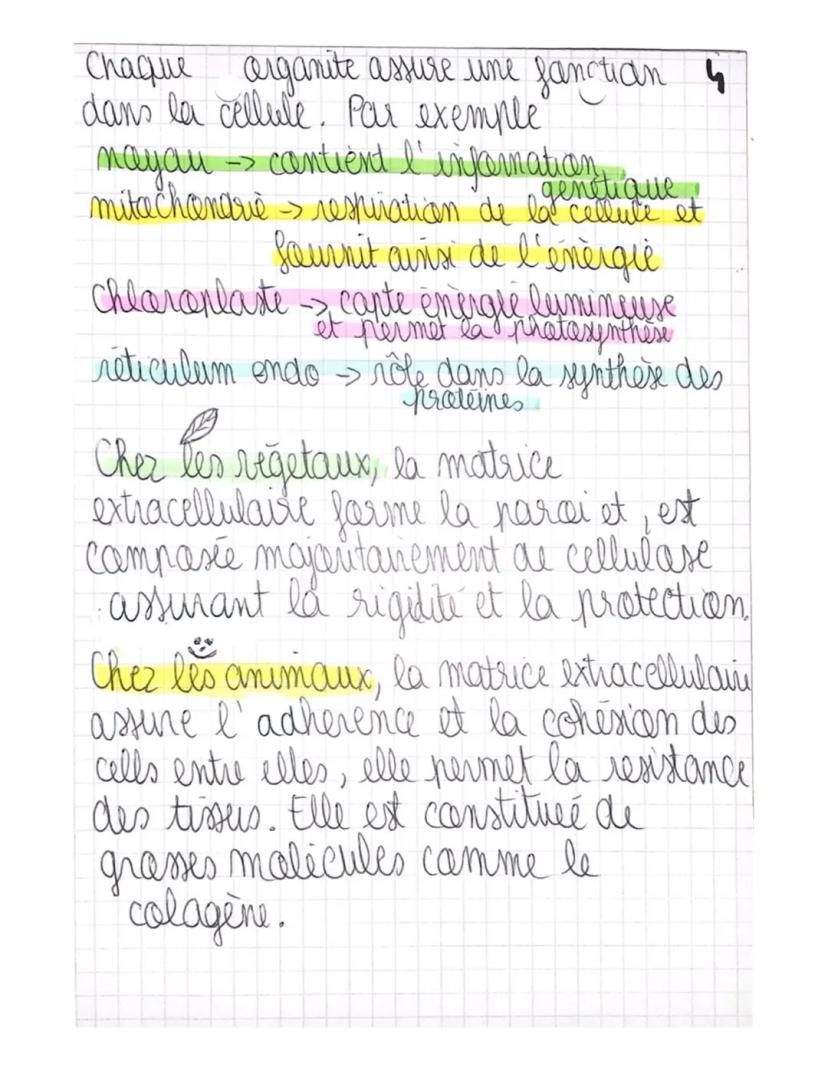 Chaque organite assure une fonction 4
dans la cellule. Par exemple
noyau -> contient l'information
génétique
mitochondrie -> respiration de la cellule et
fournit ainsi de l'énèrgie
Chloroplaste -> capte énèrgie lumineuse
et permet la photosynthèse
réticulum endo -> rôle dans la synthèse des
protéines
Chez les végetaux, la matrice
extracellulaire forme la paroi et, est
composée majoritairement de cellulose
assurant la rigidité et la protection.
Chez les animaux, la matrice extracellulaire
assure l'adhérence et la cohésion des
cells entre elles, elle permet la resistance
des tissus. Elle est constitueé de
grosses molécules comme le
colagène.